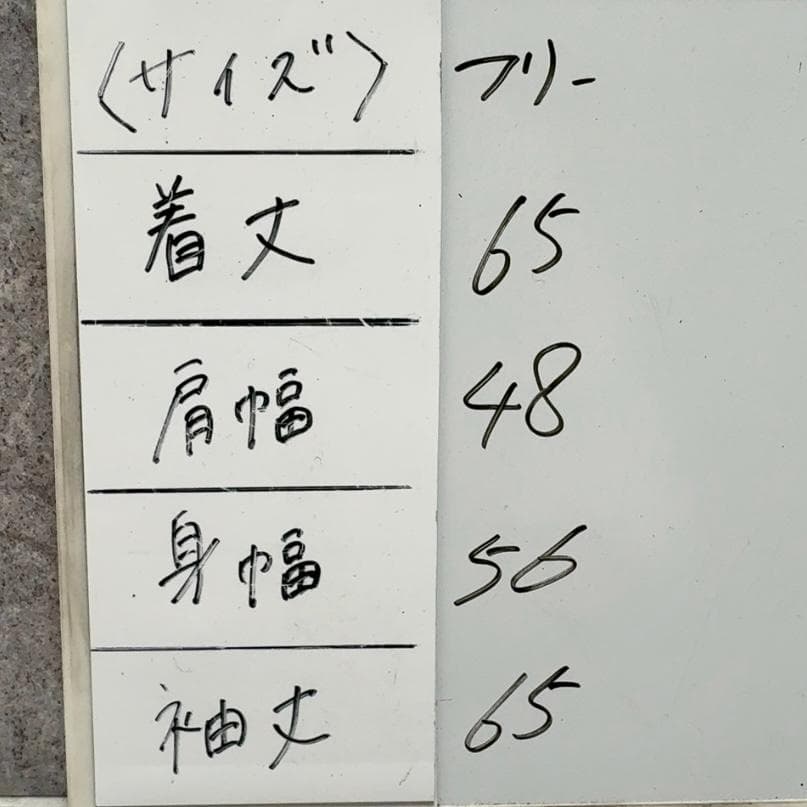 〈サイズ〉 フリー
着丈 65
肩幅 48
身幅 56
袖丈 65